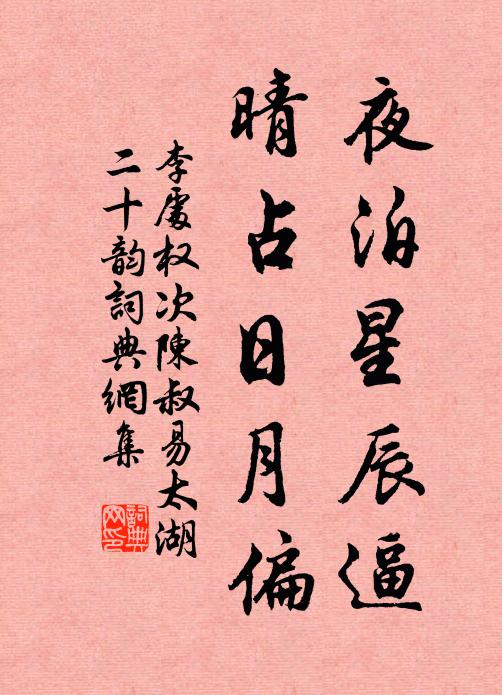 夜泊星辰逼
晴占日月偏
李處权次陳叔易太湖
二十韵詞典網集
詞典
网印